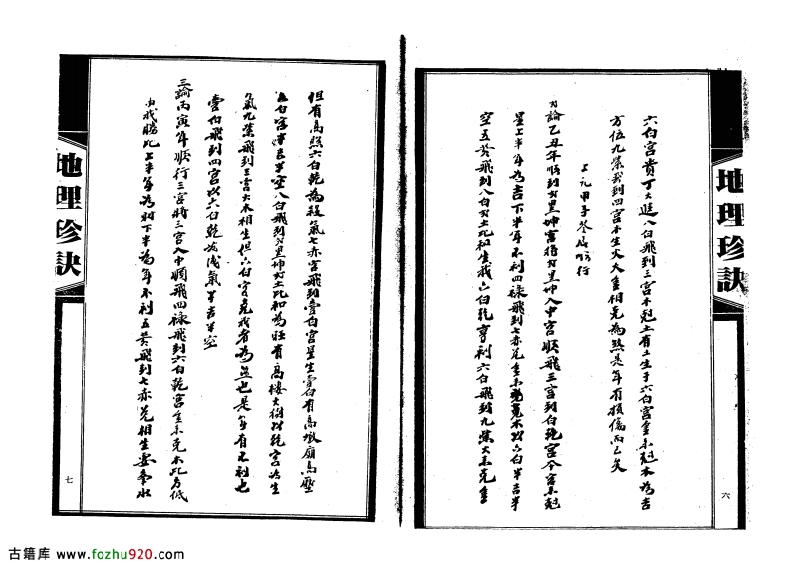 地理珍訣
六白宮貴丁大進八白飛到三宮木尅土有土生于六白宮金來尅木為吉
方位九紫飛到四宮木生火火金相克為煞是年有損傷而已矣
上元甲子冬后順行
論乙丑年順到黑坤宮將黑坤入中宮順飛三宮到白乾宮今宮來尅
星上半年為吉下半年不利四祿飛到七赤兌金來克木以六白半吉半
空五黃飛到八白土比和生我六白乾亨利六白飛到九紫火來克金
六
地理珍訣
但有高照六白乾為殺氣七赤宮飛到壹白宮星生宮白有高墩廟高壓
白宮半吉半空八白飛到黑坤土比和為旺有高樓大樹以乾宮為生
氣九紫飛到三宮火木相生但六白宮克我者為煞也是年有不利也
壹白飛到四宮以六白乾為洩氣半吉半空
三論丙寅年順行三宮將三宮入中順飛四祿飛到六白乾宮金來克木此方低
為我勝比上半年為財下半為年不利五黃飛到七赤兌相生
七
古籍库 www.fozhu920.com